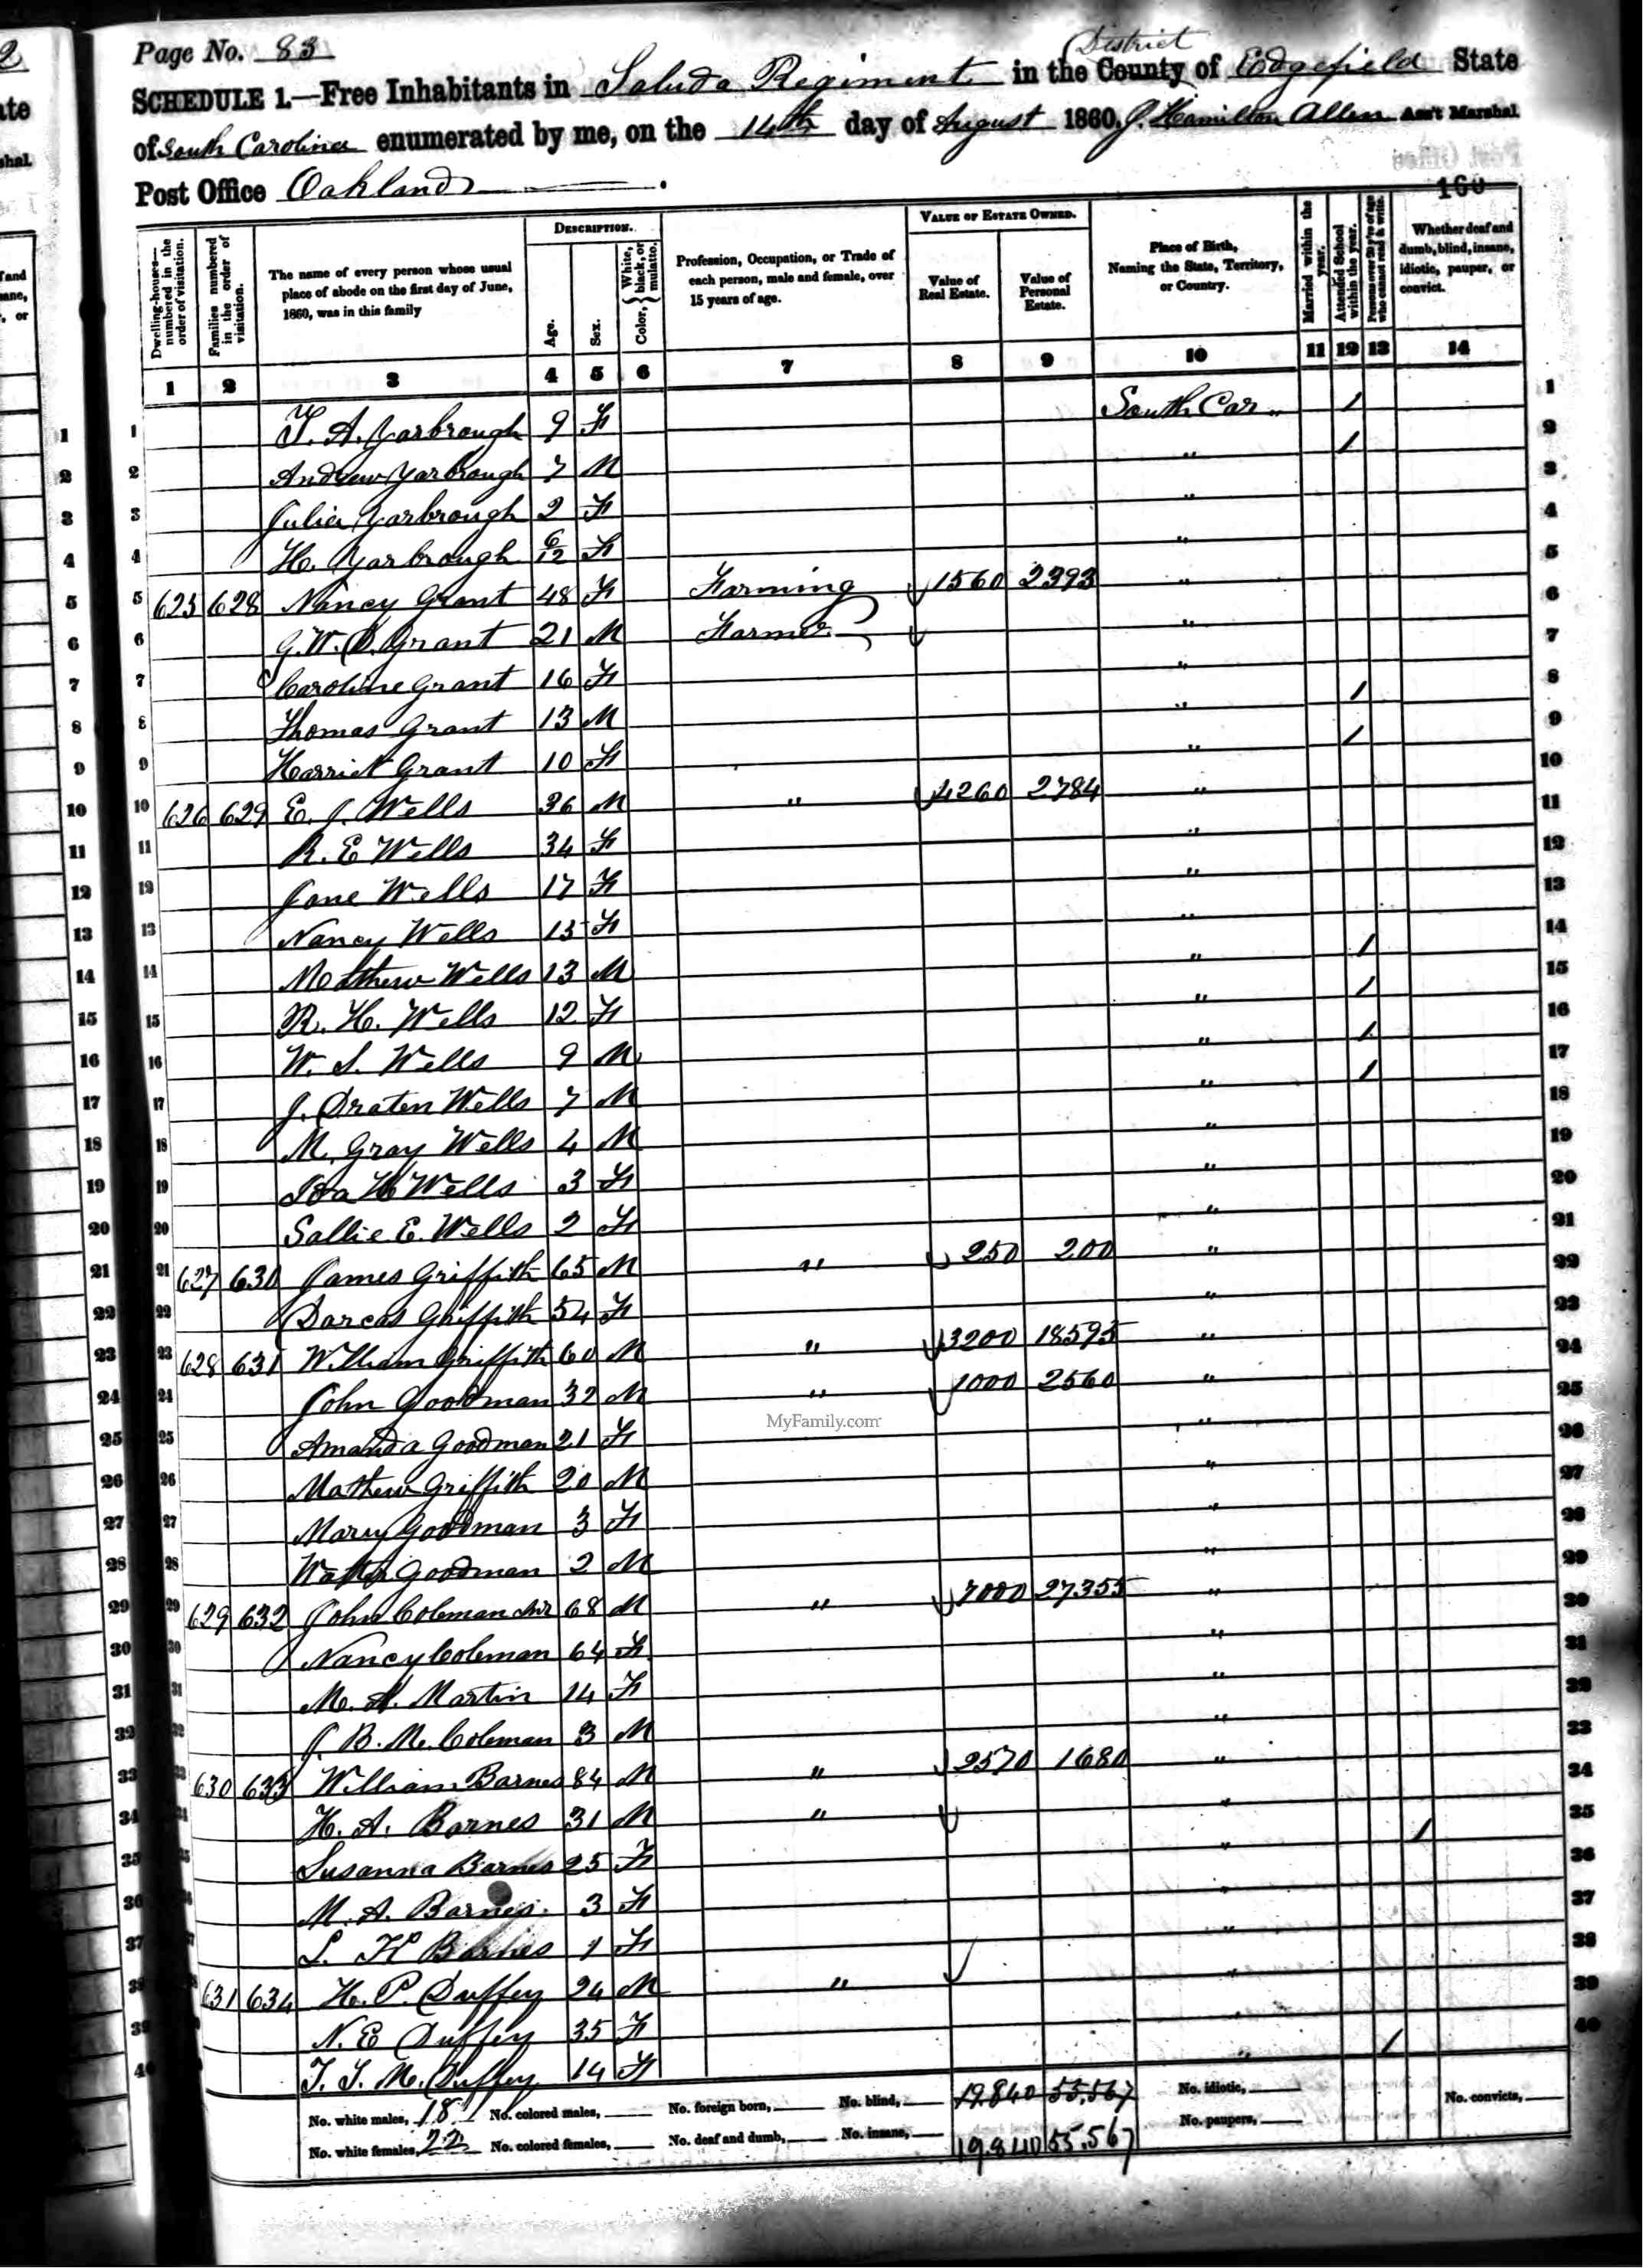 Page No. 83
SCHEDULE 1.—Free Inhabitants in Saluda Regiment in the County District of Edgefield State
of South Carolina enumerated by me, on the 14th day of August 1860. J. Hamilton Allen Ass't Marshal
Post Office Oakland.
160
Dwelling-houses—numbered in the order of visitation.
Families numbered in the order of visitation.
The name of every person whose usual place of abode on the first day of June, 1860, was in this family
DESCRIPTION.
Age.
Sex.
Color, White, black, or mulatto.
Profession, Occupation, or Trade of each person, male and female, over 15 years of age.
VALUE OF ESTATE OWNED.
Value of Real Estate.
Value of Personal Estate.
Place of Birth, Naming the State, Territory, or Country.
Married within the year.
Attended School within the year.
Persons over 20 y'rs of age who cannot read & write.
Whether deaf and dumb, blind, insane, idiotic, pauper, or convict.
1 2 3 4 5 6 7 8 9 10 11 12 13 14
1 T. A. Yarbrough 9 F South Car. / 1
2 Andrew Yarbrough 7 M " / 2
3 Julia Yarbrough 2 F " 3
4 H. Yarbrough 6/12 F " 4
5 625 628 Nancy Grant 48 F Farming 1560 2393 " 5
6 G. W. D. Grant 21 M Farmer " 6
7 Caroline Grant 16 F " 7
8 Thomas Grant 13 M " / 8
9 Harriet Grant 10 F " / 9
10 626 629 E. J. Wells 36 M " 4260 2784 " 10
11 R. E Wells 34 F " 11
12 Jane Wells 17 F " 12
13 Nancy Wells 15 F " 13
14 Matthew Wells 13 M " / 14
15 R. H. Wells 12 F " / 15
16 W. S. Wells 9 M " / 16
17 J. Draten Wells 7 M " / 17
18 M. Gray Wells 4 M " 18
19 Ida H Wells 3 F " 19
20 Sallie E. Wells 2 F " 20
21 627 630 James Griffith 65 M " 250 200 " 21
22 Darcas Griffith 54 F " 22
23 628 631 William Griffith 60 M " 3200 18595 " 23
24 John Goodman 32 M " 1000 2560 " 24
25 Amanda Goodman 21 F " 25
26 Mathew Griffith 20 M " 26
27 Mary Goodman 3 F " 27
28 Walter Goodman 2 M " 28
29 629 632 John Coleman 68 M " 7000 27355 " 29
30 Nancy Coleman 64 F " 30
31 M. A. Martin 14 F " 31
32 J. B. M. Coleman 3 M " 32
33 630 633 William Barnes 84 M " 2570 1680 " 33
34 H. A. Barnes 31 M " " 34
35 Susanna Barnes 25 F " / 35
36 M. A. Barnes. 3 F " 36
37 L. K Barnes 1 F " 37
38 631 634 H. P. Duffey 24 M " " 38
39 N. E Duffey 35 F " 39
40 T. S. M. Duffey 14 F " / 40
No. white males, 18 No. colored males, No. foreign born, No. blind, 19.840 55,567 No. idiotic, No. convicts,
No. white females, 22 No. colored females, No. deaf and dumb, No. insane, 19,840 55,567 No. paupers,
MyFamily.com